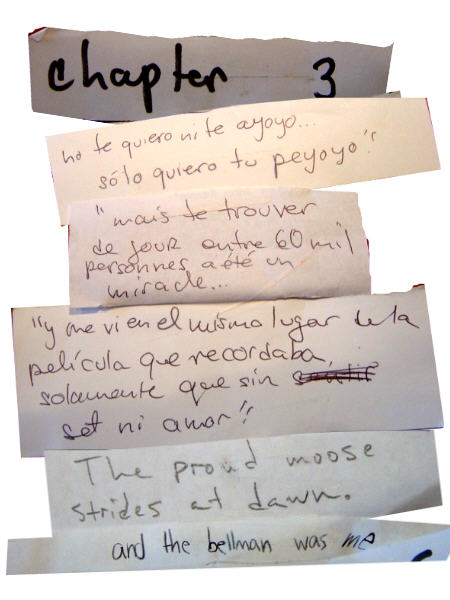 chapter 3
no te quiero ni te ayoyo...
sólo quiero tu peyoyo"
"mais te trouver
de jour entre 60 mil
personnes a été un
miracle...
"y me vi en el mismo lugar de la
película que recordaba,
solamente que sin
set ni amor"
The proud moose
strides at dawn.
and the bellman was me